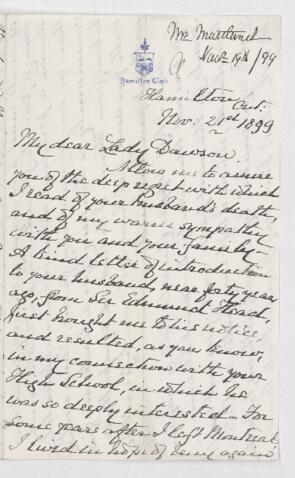 Nov 19th/99
Hamilton Club
Hamilton Ont.
Nov. 21st 1899
My dear Lady Dawson,
Allow me to assure
you of the deep regret with which
I read of your husband's death,
and of my warm sympathy
with you and your family.
A kind letter of introduction
to your husband, near forty years
ago, from Sir Edmund Head,
first brought me to his notice,
and resulted, as you know,
in my connection with your
High School, in which he
was so deeply interested - For
some years after I left Montreal
I lived in hope of being again